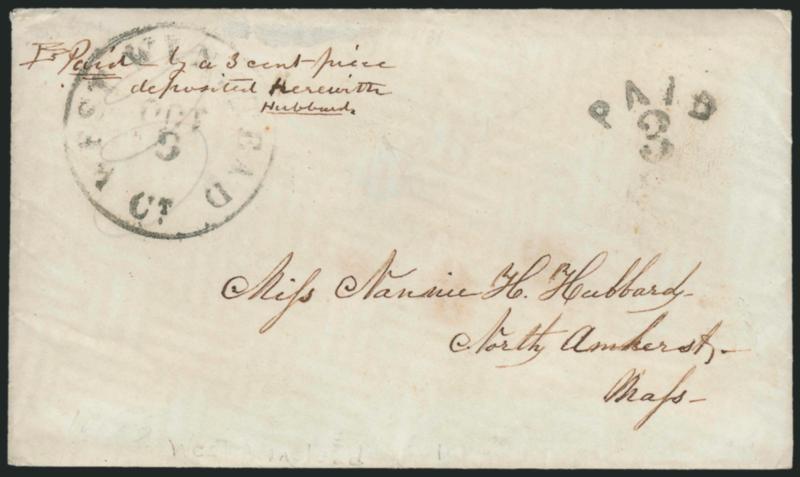 Paid by a 3 cent piece
deposited herewith
Hubbard.
WEST WINSTEAD
OCT
5
CT
PAID
3
Miss Nannie H. Hubbard
North Amherst,
Mass